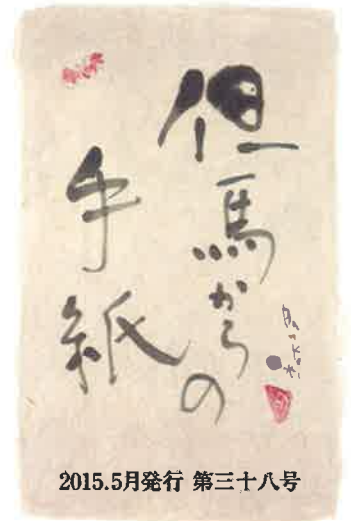 但馬からの
手紙
2015.5月発行 第三十八号